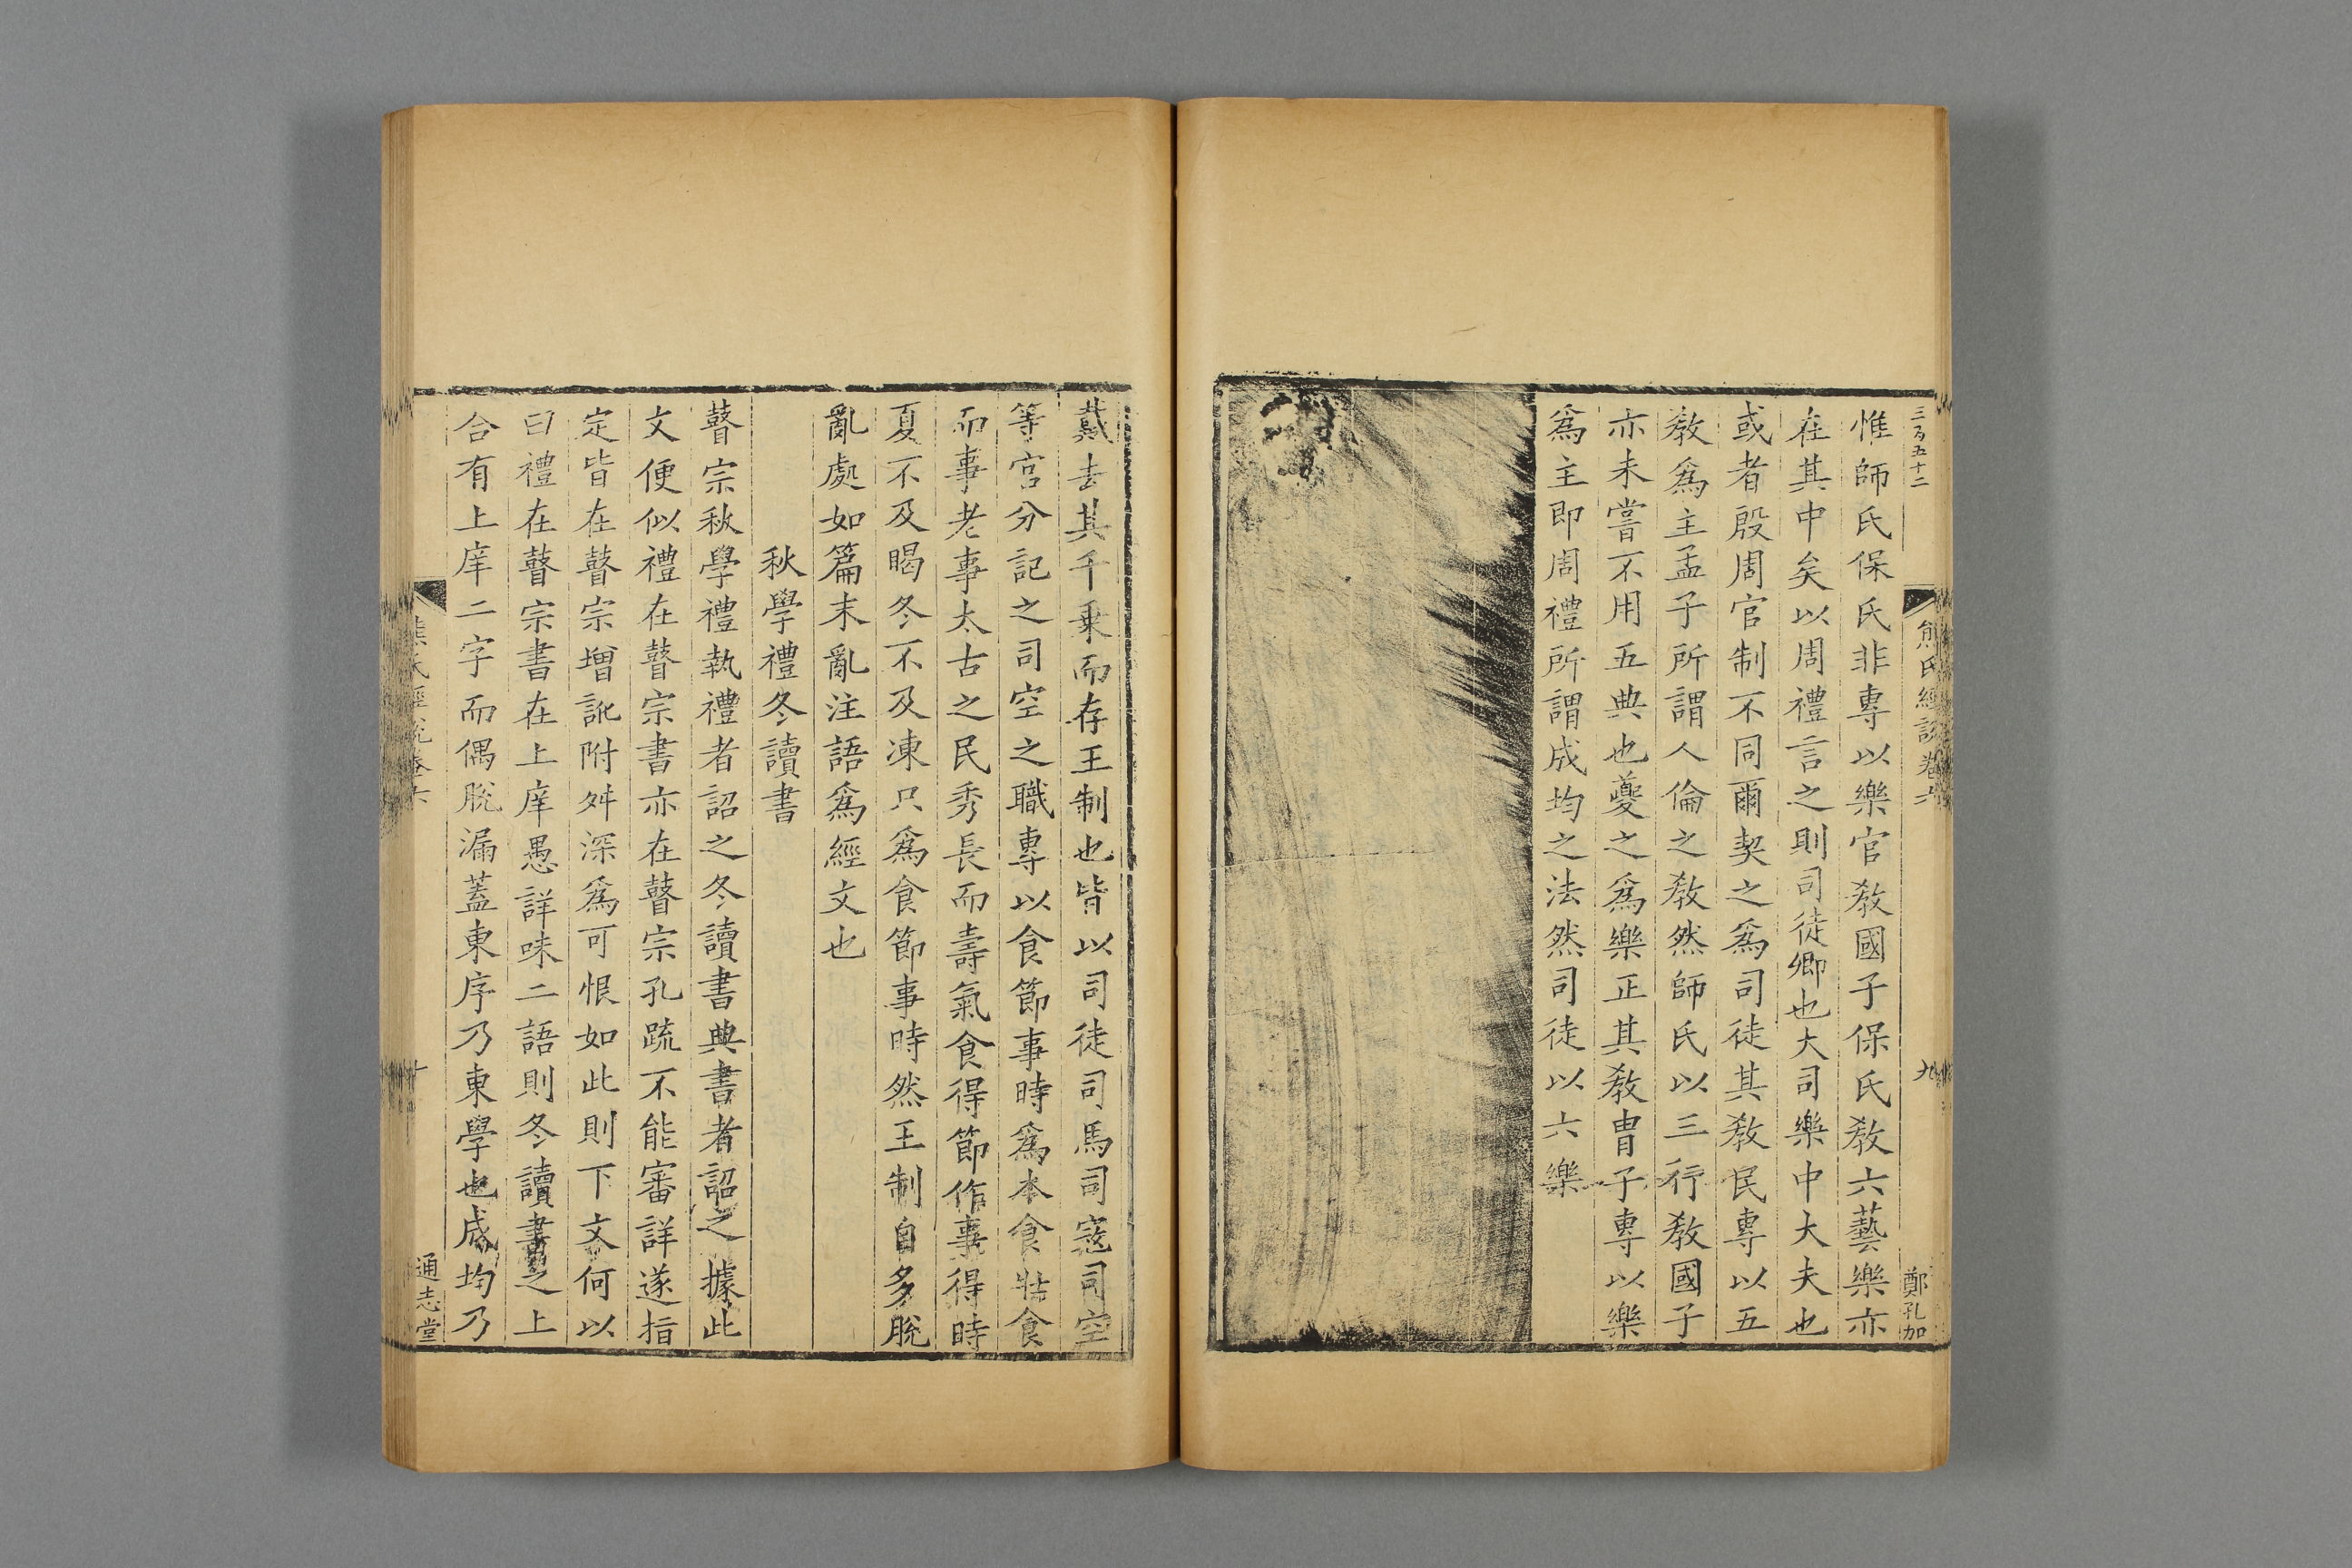 三百五十二
熊氏經說卷六
九
鄭孔加
惟師氏保氏非專以樂官教國子保氏教六藝樂亦
在其中矣以周禮言之則司徒卿也大司樂中大夫也
或者殷周官制不同爾契之爲司徒其教民專以五
教爲主孟子所謂人倫之教然師氏以三行教國子
亦未嘗不用五典也夔之爲樂正其教胄子專以樂
爲主即周禮所謂成均之法然司徒以六樂
戴去其千乗而存王制也皆以司徒司馬司寇司空
等官分記之司空之職專以食節事時爲本食壯食
而事老事太古之民秀長而壽氣食得節作事得時
夏不及暍冬不及凍只爲食節事時然王制自多脫
亂處如篇末亂注語爲經文也
秋學禮冬讀書
瞽宗秋學禮執禮者詔之冬讀書典書者詔之據此
文便似禮在瞽宗書亦在瞽宗孔疏不能審詳遂指
定皆在瞽宗增訛附舛深爲可恨如此則下文何以
曰禮在瞽宗書在上庠愚詳味二語則冬讀書之上
合有上庠二字而偶脫漏蓋東序乃東學也成均乃
熊氏經說卷六
十
通志堂